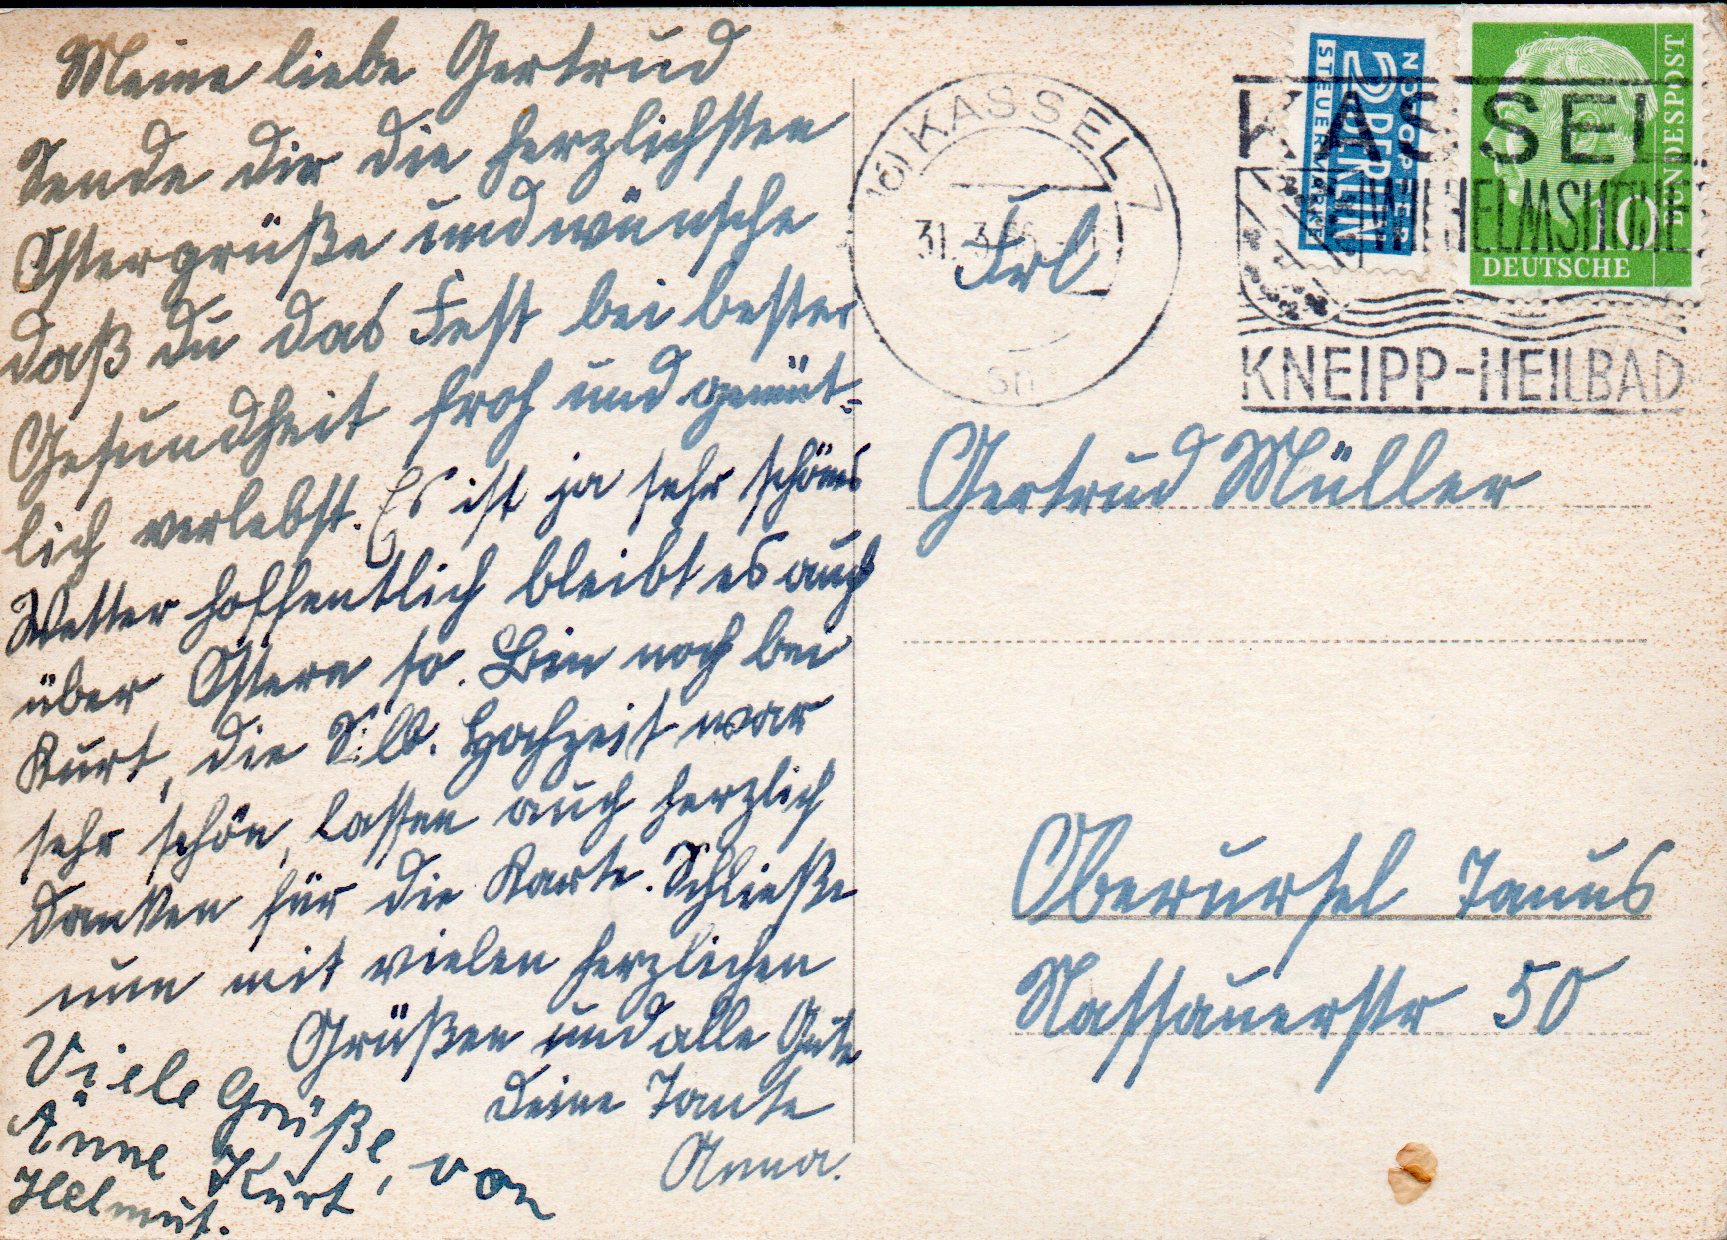 Meine liebe Gertrud
Sende dir die herzlichsten
Ostergrüße und wünsche
daß du das Fest bei bester
Gesundheit froh und gemüt-
lich verlebst. Es ist ja sehr schönes
Wetter hoffentlich bleibt es auch
über Ostern so. Bin noch bei
Kurt, die Silb. Hochzeit war
sehr schön, lassen auch herzlich
danken für die Karte. Schließe
nun mit vielen herzlichen
Grüßen und alle Gute
deine Tante
Anna.
Viele Grüße, von
Änne Kurt
Helmut.
KASSEL 7
31. 3.
Frl
NOTOPFER
2 BERLIN
STEUERMARKE
10
DEUTSCHE
BUNDESPOST
KASSEL
WILHELMSHÖHE
KNEIPP-HEILBAD
Gertrud Müller
Oberursel Taunus
Nassauerstr 50